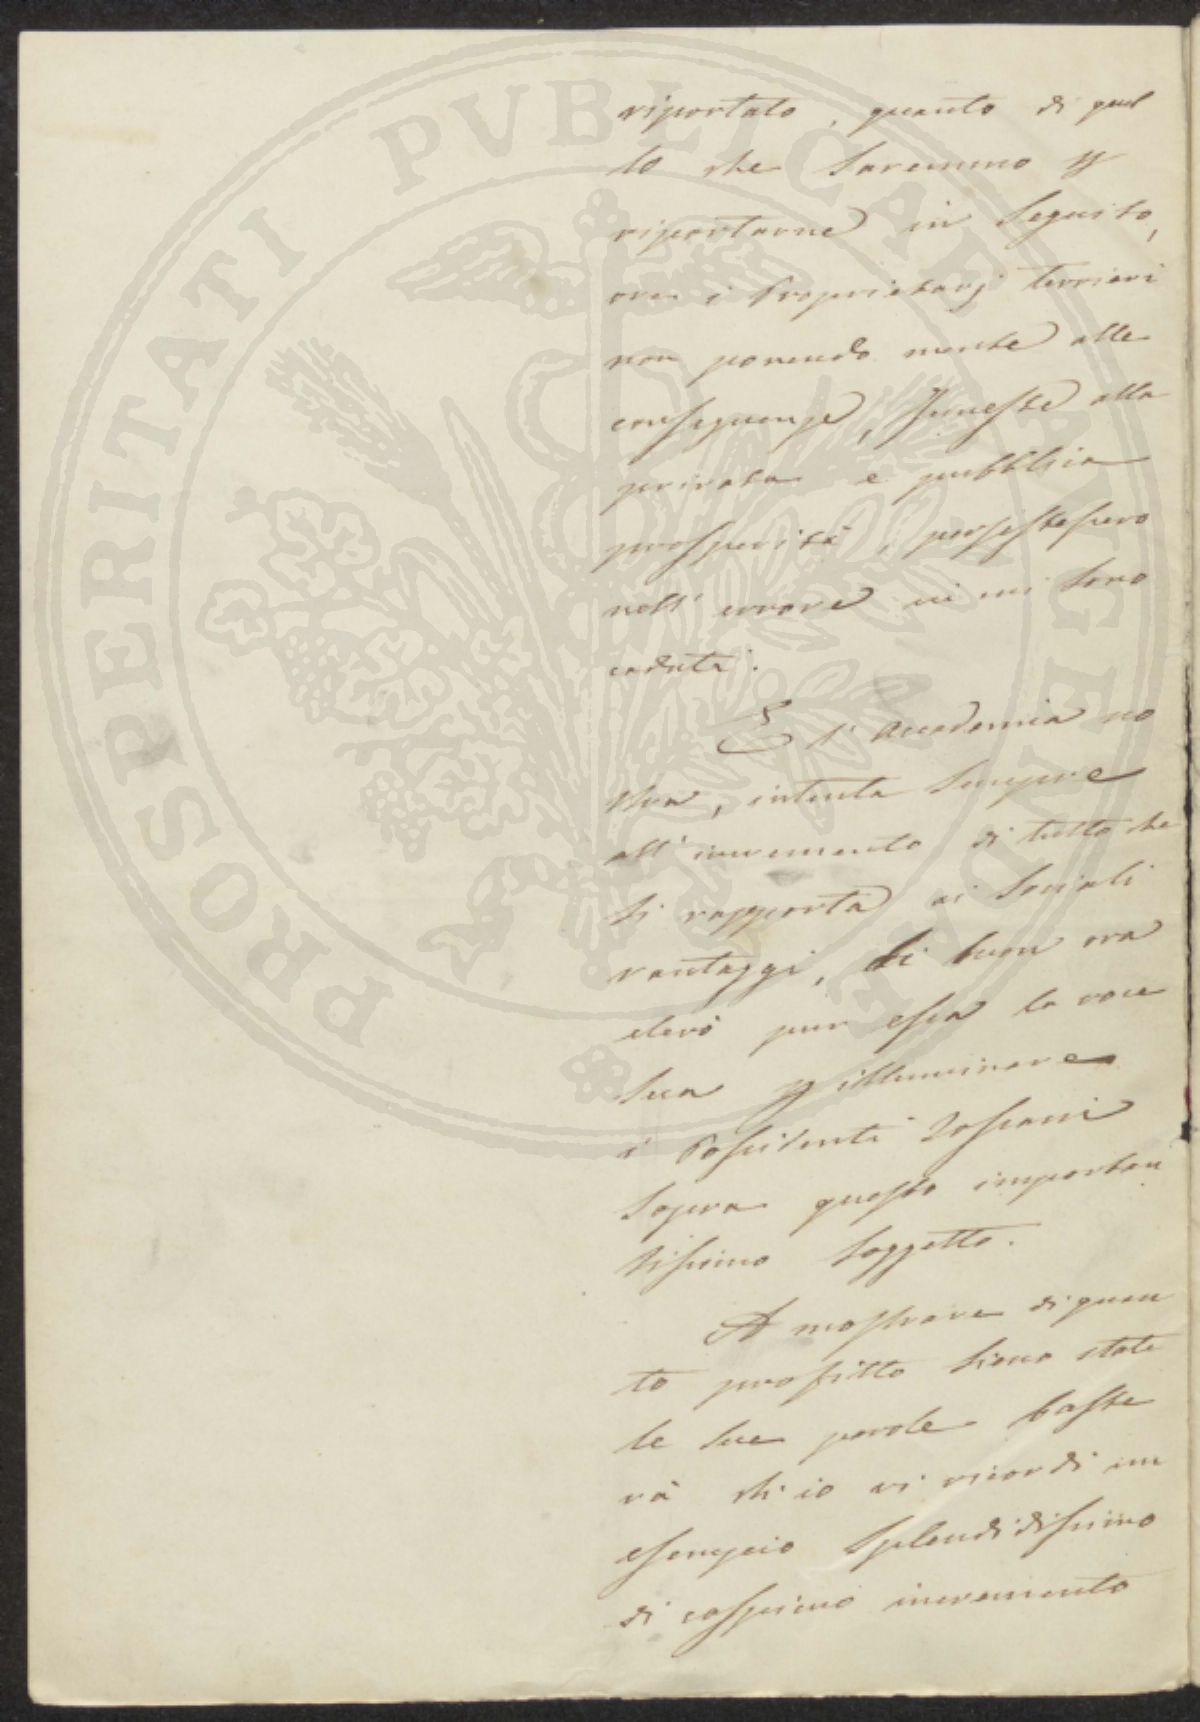 PROSPERITATI PVBLICAE AVGENDAE
riportato, quanto di quel
lo che saremmo p
riportarne in seguito,
ove i Proprietarj terrieri
non ponendo mente alle
conseguenze, funeste alla
privata e pubblica
prosperità, persistessero
nell' errore in cui sono
caduti.
E l' Accademia no
stra, intenta sempre
all' incremento di tutto che
si rapporta ai sociali
vantaggi, di buon ora
elevò pur essa la voce
sua p illuminare
i Possidenti Toscani
sopra questo importan
tissimo soggetto.
A mostrare di quan
to profitto siano state
le sue parole baste
rà ch' io vi ricordi un
esempio splendidissimo
di cospicuo incremento